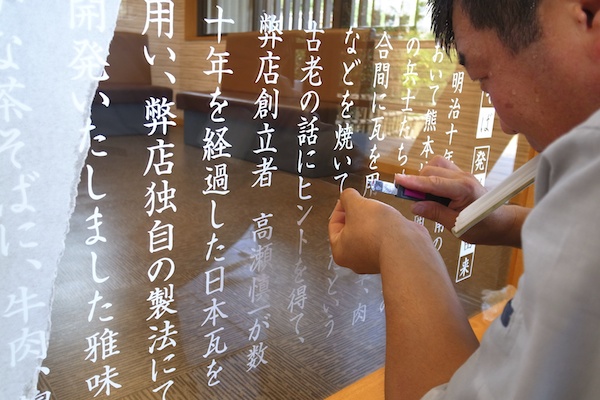 は発
来
明治十年
おいて熊本
の兵士たち
合間に瓦を用
、肉
などを焼いて
たという
古老の話にヒントを得て、
弊店創立者 高瀬慎一が数
十年を経過した日本瓦を
用い、弊店独自の製法にて
開発いたしました雅味
な茶そばに、牛肉、